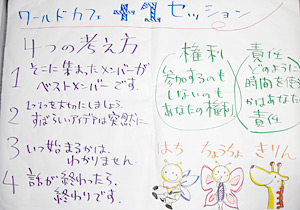 ワールドカフェ +1 セッション
4つの考え方
1 そこに集まったメンバーが
ベストメンバーです。
2 1つ1つを大切にしましょう。
すばらしいアイデアは突然に。
3 いつ始まるかは、
わかりません。
4 話が終わったら、
終わりです。
権利
参加するのも
しないのも
あなたの権利
責任
どのように
時間を使う
かはあなた
責任
はち
ちょうちょ
きりん